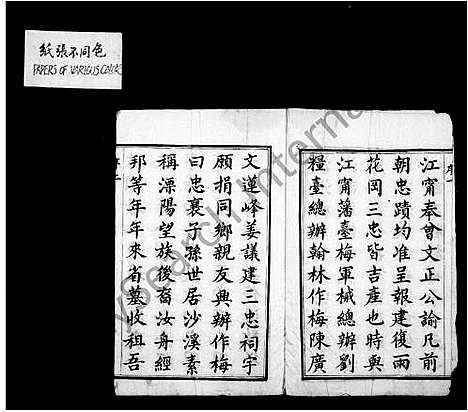 紙張不同色
PAPERS OF VARIOUS COLORS
序一
江甯奉曾文正公諭凡前
朝忠蹟均准呈報建後雨
花岡三忠皆吉產也時與
江甯藩臺梅軍械總辦劉
糧臺總辦翰林作梅陳廣
文蓮峰姜議建三忠祠宇
願捐同鄉親友興辦作梅
曰忠襄子孫世居沙溪素
稱溧陽望族後裔汝舟經
邦等年年來省墓收租吾